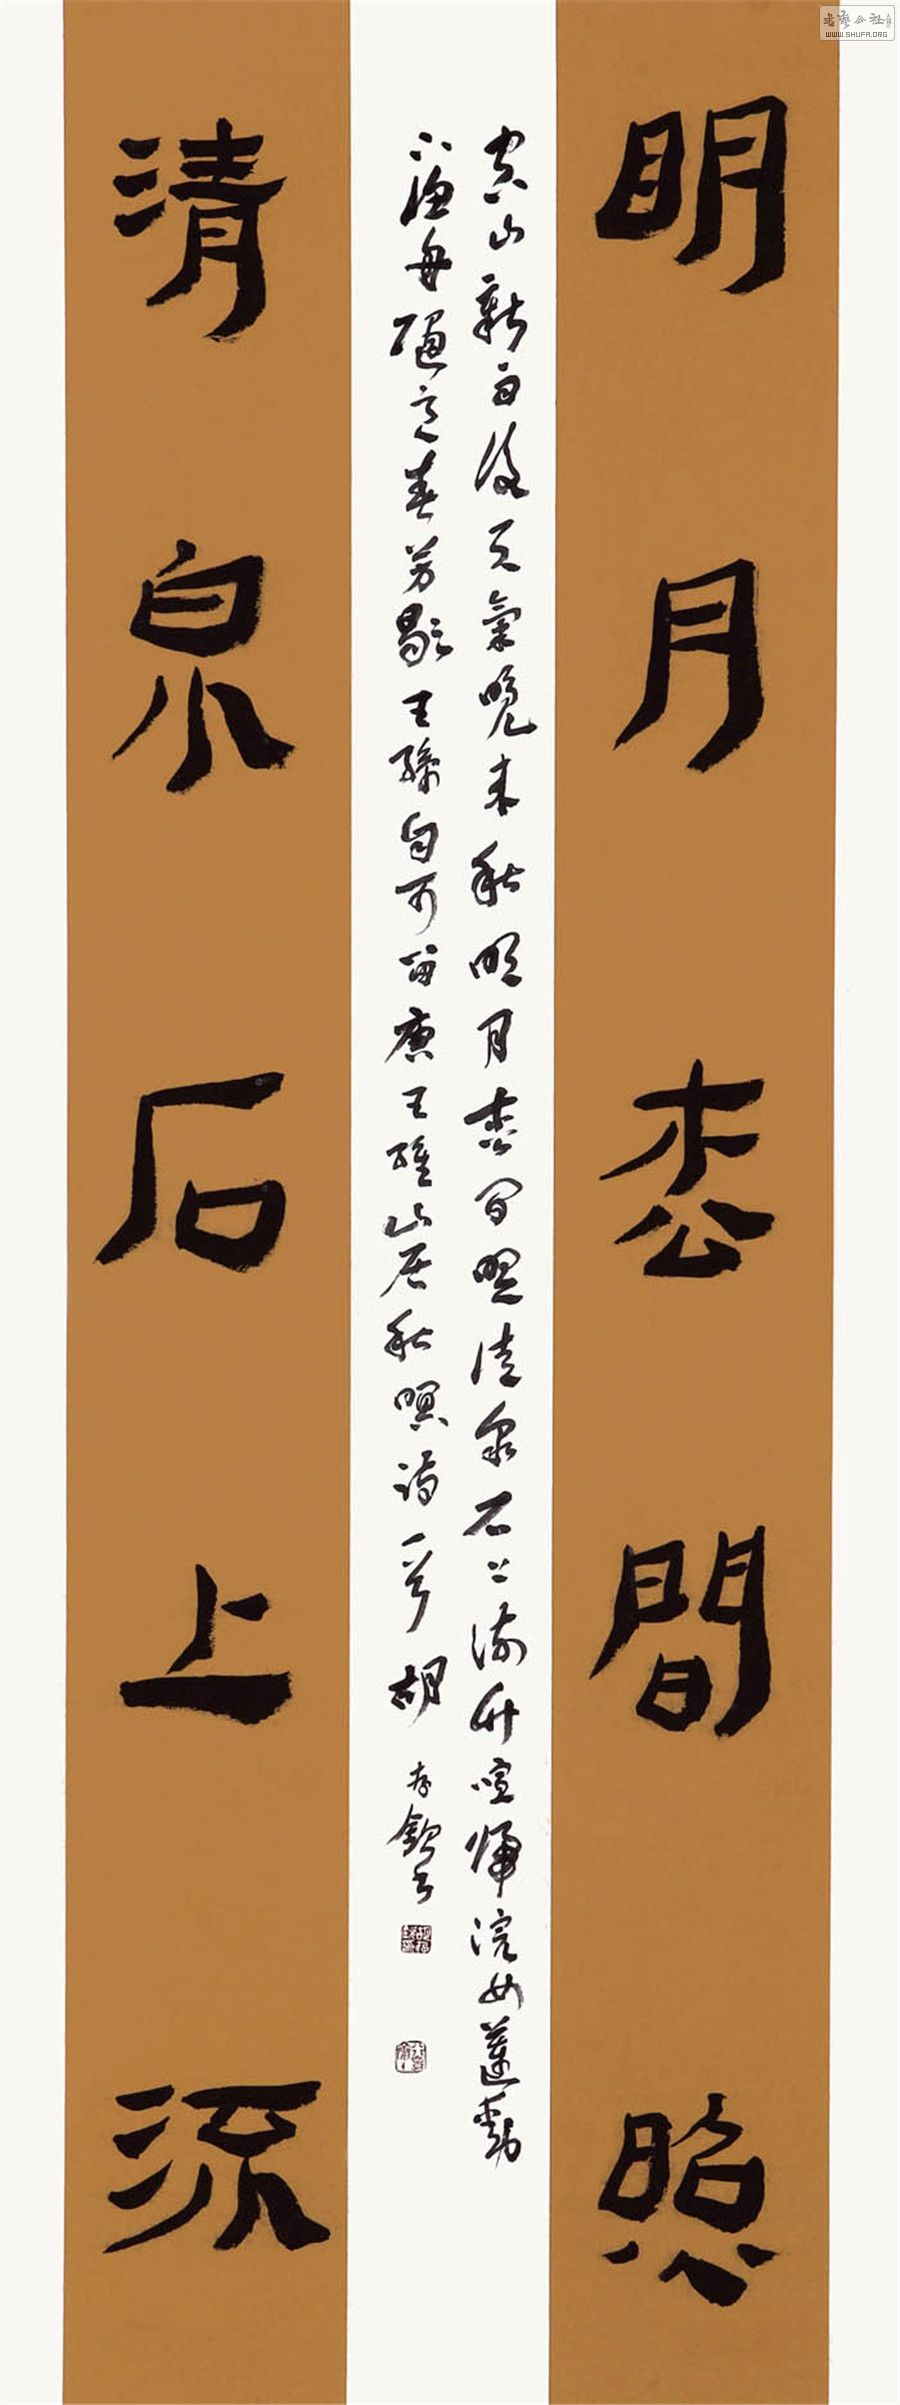 明月枩間照
空山新雨後天氣晚來秋明月枩間照清泉石上流竹喧歸浣女蓮動
下漁舟隨意春芳歇王孫自可留唐王維山居秋暝詩一首 胡
清泉石上流
书艺公社
WWW.SHUFA.ORG